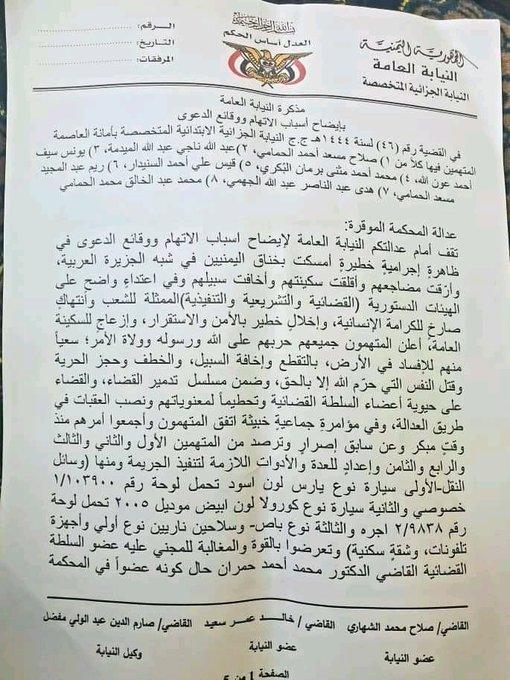 الجمهورية اليمنية
النيابة العامة
النيابة الجزائية المتخصصة
بسم الله الرحمن الرحيم
العدل أساس الحكم
الرقم:
التاريخ:
المرفقات:
مذكرة النيابة العامة
بإيضاح أسباب الاتهام ووقائع الدعوى
في القضية رقم (٤٦) لسنة ١٤٤٤هـ ج.ج النيابة الجزائية الابتدائية المتخصصة بأمانة العاصمة
المتهمين فيها كلاً من ١) صلاح مسعد أحمد الحمامي، ٢) عبد الله ناجي عبد الله الميدمة، ٣) يونس سيف
أحمد عون الله، ٤) محمد أحمد مثنى برمان البُكري، ٥) قيس علي أحمد السنيدار، ٦) ريم عبد المجيد
مسعد الحمامي، ٧) هدى عبد الناصر عبد الله الجهمي، ٨) محمد عبد الخالق محمد الحمامي
عدالة المحكمة الموقرة:
تقف أمام عدالتكم النيابة العامة لإيضاح أسباب الاتهام ووقائع الدعوى في
ظاهرةٍ إجرامية خطيرةٍ أمسكت بخناق اليمنيين في شبه الجزيرة العربية،
وأرّقت مضاجعهم وأقلقت سكينتهم وأخافت سبيلهم وفي اعتداءٍ واضح على
الهيئات الدستورية (القضائية والتشريعية والتنفيذية) الممثلة للشعب وأنتهاكٍ
صارخ للكرامة الإنسانية، وإخلالٍ خطير بالأمن والاستقرار، وإزعاج للسكينة
العامة، أعلن المتهمون جميعهم حربهم على الله ورسوله وولاة الأمر؛ سعياً
منهم للإفساد في الأرض، بالتقطع وإخافة السبيل، والخطف وحجز الحرية
وقتل النفس التي حرّم الله إلا بالحق، وضمن مسلسل تدمير القضاء، والقضاء
على حيوية أعضاء السلطة القضائية وتحطيماً لمعنوياتهم ونصب العقبات في
طريق العدالة، وفي مؤامرة جماعيةٍ خبيثة اتفق المتهمون وأجمعوا أمرهم منذ
وقتٍ مبكر وعن سابق إصرارٍ وترصد من المتهمين الأول والثاني والثالث
والرابع والثامن وإعدادٍ للعدة والأدوات اللازمة لتنفيذ الجريمة ومنها (وسائل
النقل-الأولى سيارة نوع يارس لون اسود تحمل لوحة رقم ١/١٠٣٩٠٠
خصوصي والثانية سيارة نوع كورولا لون ابيض موديل ٢٠٠٥ تحمل لوحة
رقم ٢/٩٨٣٨ اجره والثالثة نوع باص- وسلاحين ناريين نوع أولي وأجهزة
تلفونات، وشقةٍ سكنية) وتعرضوا بالقوة والمغالبة للمجني عليه عضو السلطة
القضائية القاضي الدكتور محمد أحمد حمران حال كونه عضواً في المحكمة
القاضي/ صلاح محمد الشهاري القاضي / خالد عمر سعيد القاضي/ صارم الدين عبد الولي مفضل
عضو النيابة عضو النيابة وكيل النيابة
الصفحة 1 من 5